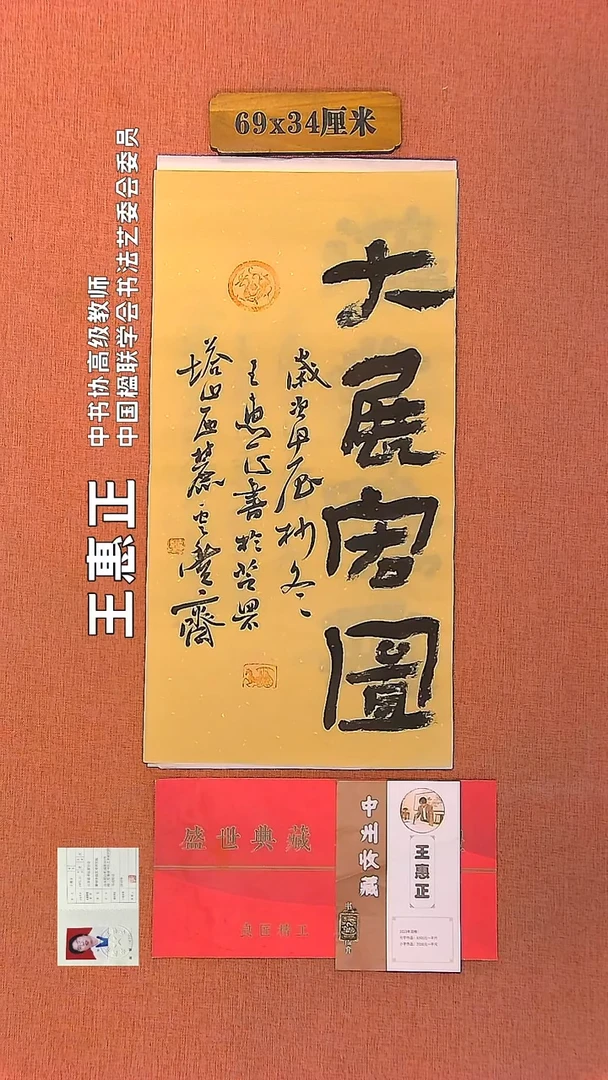 69x34厘米
大展宏圖
歲當甲辰杪冬
王惠正書於
塔山西麓雲
齋
王惠正
中书协高级教师
中国楹联学会书法艺委会委员
盛世典藏
中州收藏
王惠正